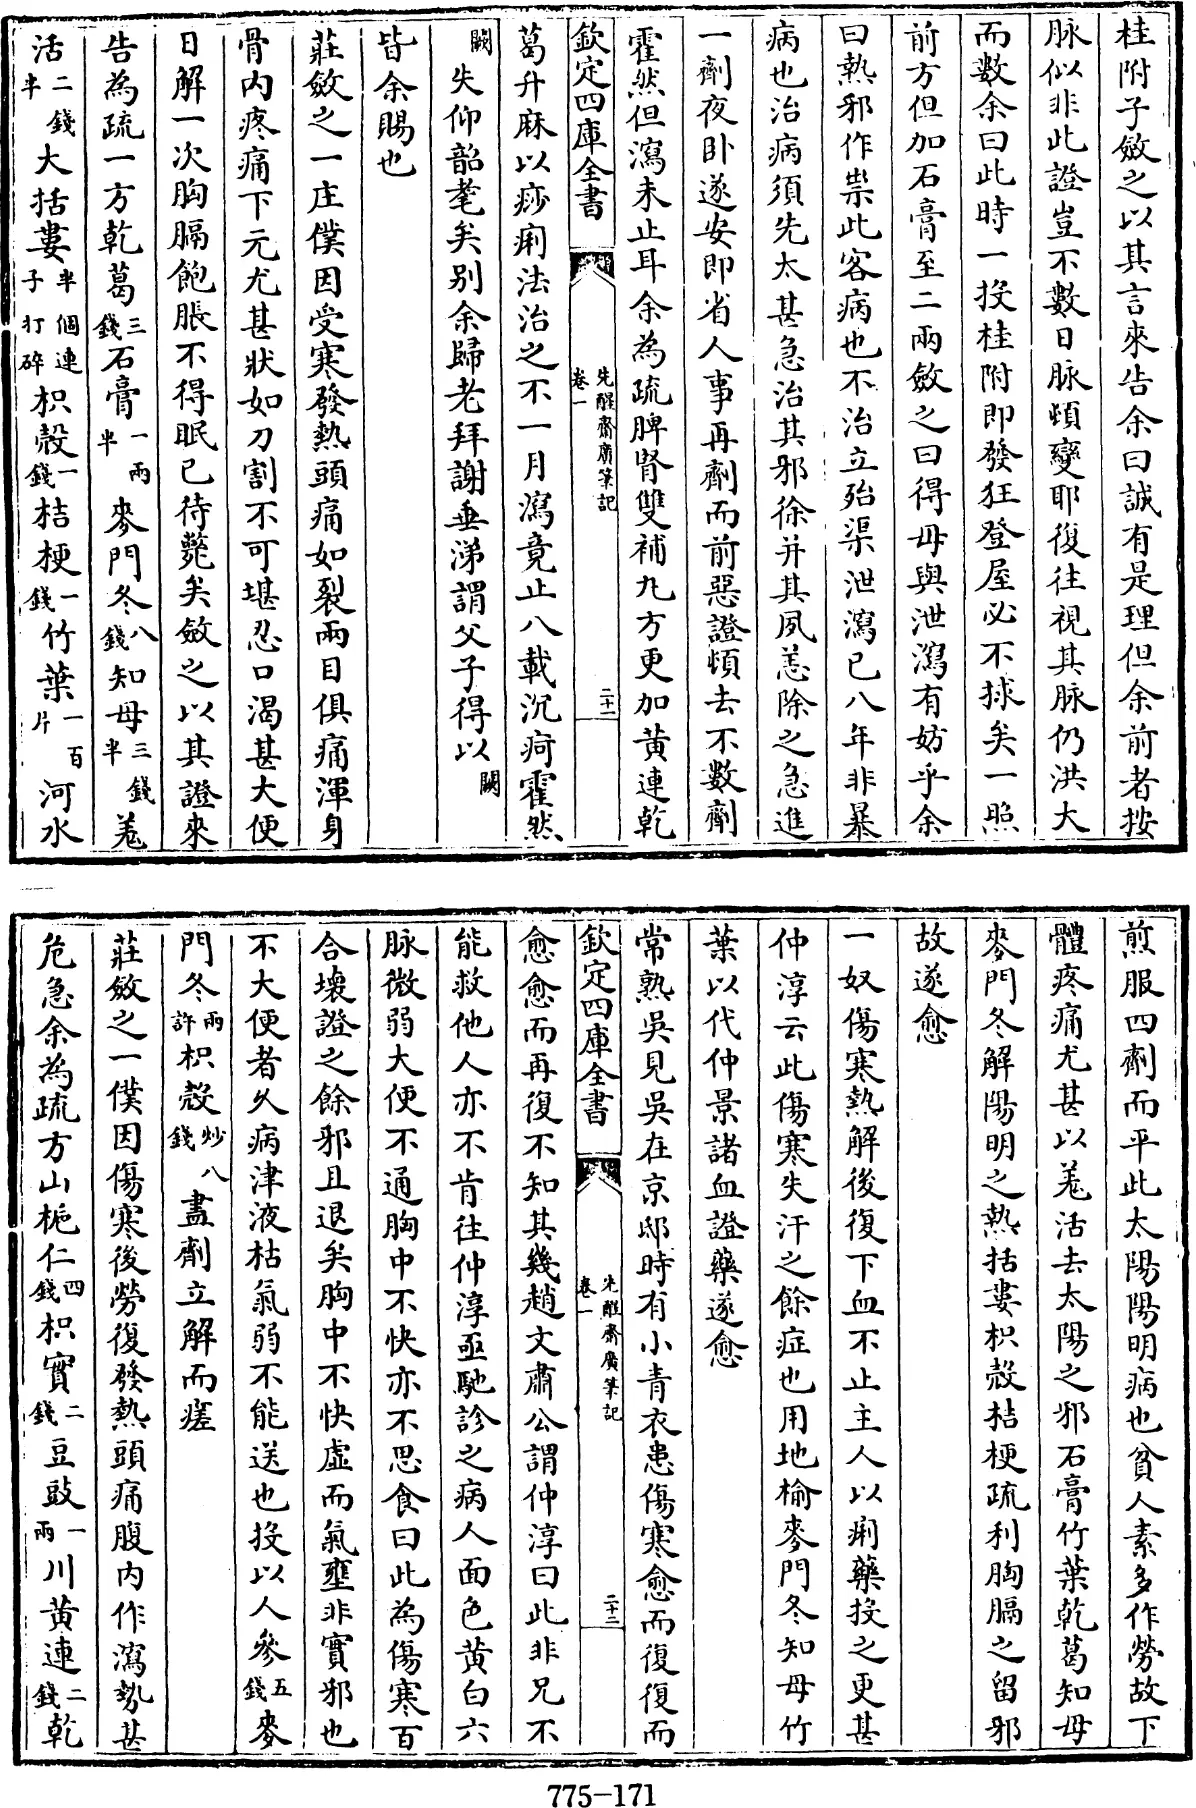 桂附子斂之以其言來告余曰誠有是理但余前者按
脉似非此證豈不數日脉頓變耶復往視其脉仍洪大
而數余曰此時一投桂附即發狂登屋必不捄矣一照
前方但加石膏至二兩斂之曰得毋與泄瀉有妨乎余
曰熱邪作祟此客病也不治立殆渠泄瀉已八年非暴
病也治病須先太甚急治其邪徐并其夙恙除之急進
一劑夜卧遂安即省人事再劑而前惡證頓去不數劑
霍然但瀉未止耳余為疏脾腎雙補九方更加黄連乾
欽定四庫全書
先醒齋廣筆記
卷一
二十一
葛升麻以痧痢法治之不一月瀉竟止八載沉疴霍然
闕失仰韶耄矣别余歸老拜謝垂涕謂父子得以闕
皆余賜也
莊斂之一庄僕因受寒發熱頭痛如裂兩目俱痛渾身
骨内疼痛下元尤甚狀如刀割不可堪忍口渴甚大便
日解一次胸膈飽脹不得眠已待斃矣斂之以其證來
告為疏一方乾葛三錢石膏一兩半麥門冬八錢知母三錢半羗
活二錢半大括蔞半個連子打碎枳殻一錢桔梗一錢竹葉一百片河水
煎服四劑而平此太陽陽明病也貧人素多作勞故下
體疼痛尤甚以羗活去太陽之邪石膏竹葉乾葛知母
麥門冬解陽明之熱括蔞枳殻桔梗疏利胸膈之留邪
故遂愈
一奴傷寒熱解後復下血不止主人以痢藥投之更甚
仲淳云此傷寒失汗之餘症也用地榆麥門冬知母竹
葉以代仲景諸血證藥遂愈
常熟吳見吳在京邸時有小青衣患傷寒愈而復復而
欽定四庫全書
先醒齋廣筆記
卷一
二十二
愈愈而再復不知其幾趙文肅公謂仲淳曰此非兄不
能救他人亦不肯往仲淳亟馳診之病人面色黄白六
脉微弱大便不通胸中不快亦不思食曰此為傷寒百
合壞證之餘邪且退矣胸中不快虛而氣壅非實邪也
不大便者久病津液枯氣弱不能送也投以人參五錢麥
門冬兩許枳殻炒八錢盡劑立解而瘥
莊斂之一僕因傷寒後勞復發熱頭痛腹内作瀉勢甚
危急余為疏方山梔仁四錢枳實二錢豆豉一兩川黄連二錢乾
775-171